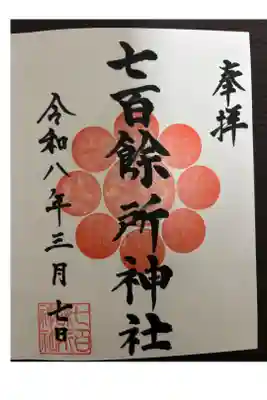 奉拝
七百餘所神社
令和八年三月七日
七百餘所神社